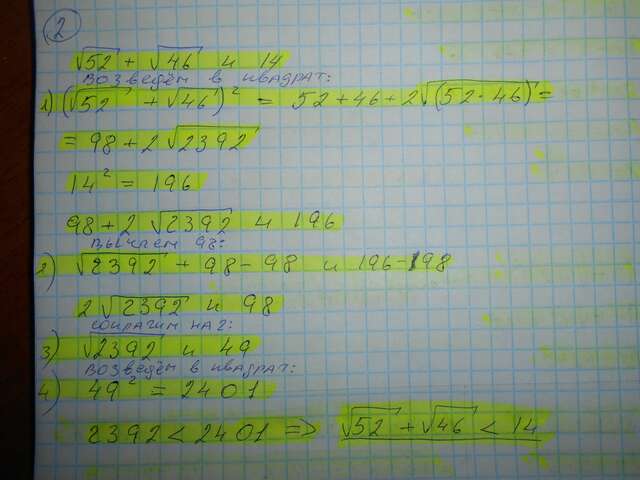 2
√52 + √46 и 14
возведём в квадрат:
1) (√52 + √46)² = 52 + 46 + 2√(52·46) =
= 98 + 2√2392
14² = 196
98 + 2 √2392 и 196
вычтем 98:
2) √2392 + 98 - 98 и 196 - 98
2√2392 и 98
сократим на 2:
3) √2392 и 49
возведём в квадрат:
4) 49² = 2401
2392 < 2401 => √52 + √46 < 14